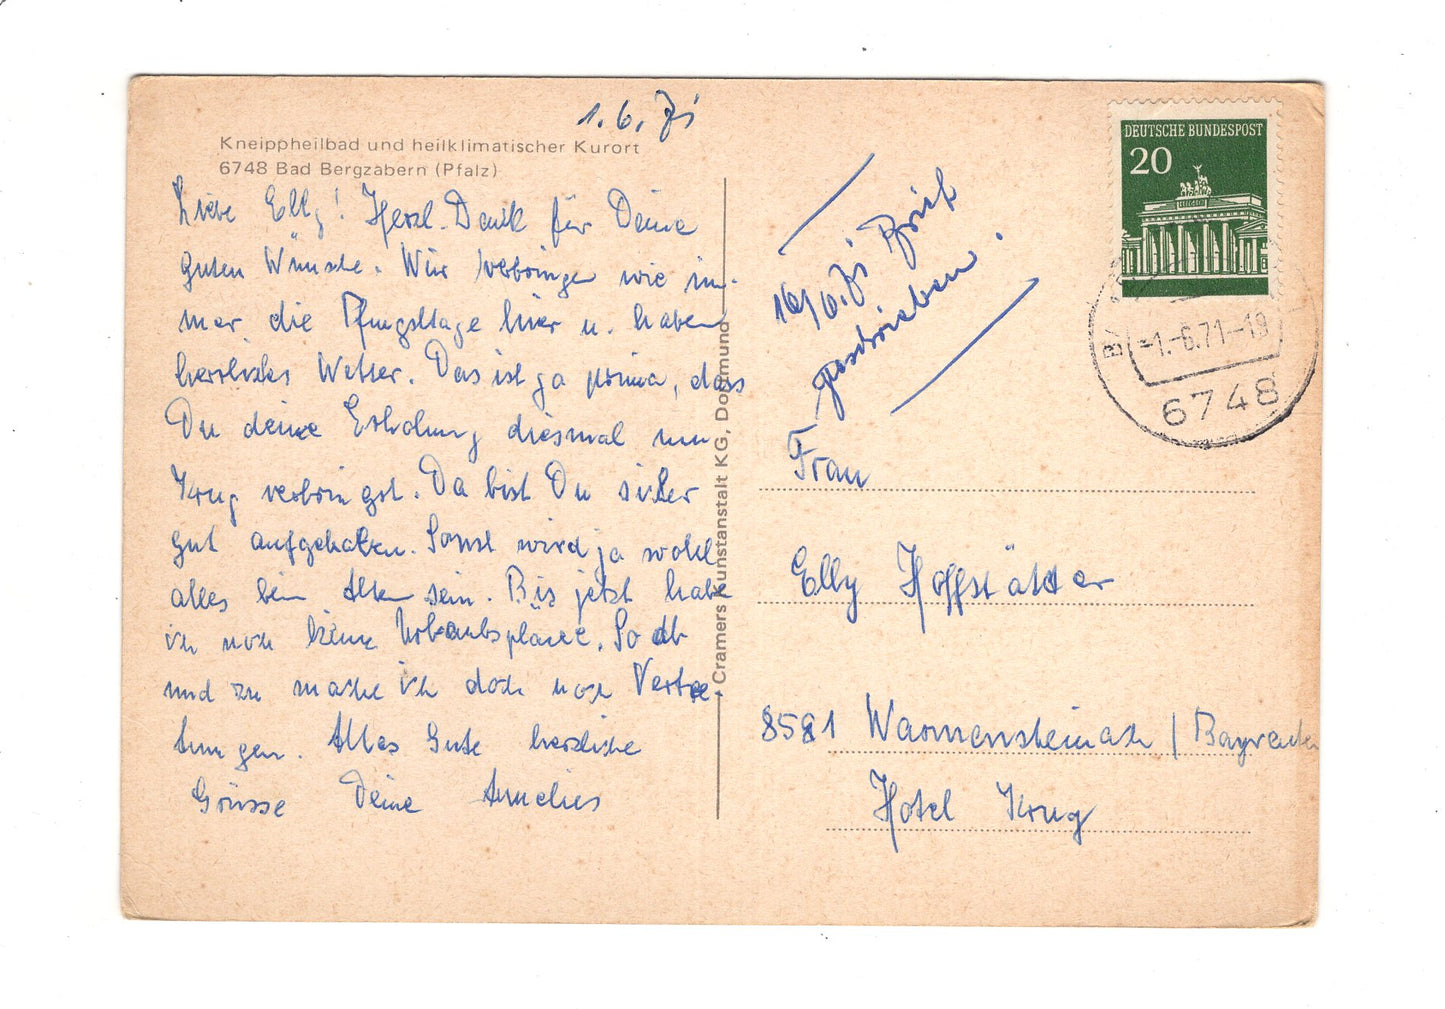 1.6.71
Kneippheilbad und heilklimatischer Kurort
6748 Bad Bergzabern (Pfalz)
Liebe Elly! Herzl. Dank für Deine
guten Wünsche. Wir verbringen wie im-
mer die Pfingsttage hier u. haben
herrliches Wetter. Das ist ja prima, dass
Du deine Erholung diesmal im
Krug verbringst. Da bist Du sicher
gut aufgehoben. Sonst wird ja wohl
alles beim Alten sein. Bis jetzt habe
ich noch keine Urlaubspläne. So ab
und zu mache ich doch noch Vertre-
tungen. Alles Gute herzliche
Grüsse Deine Annelies
Cramers Kunstanstalt KG, Dortmund
16/6.71 Brief
geschrieben.
DEUTSCHE BUNDESPOST
20
-1.-6.71-19
6748
Frau
Elly Hoffstätter
8581 Warmensteinach / Bayreuth
Hotel Krug